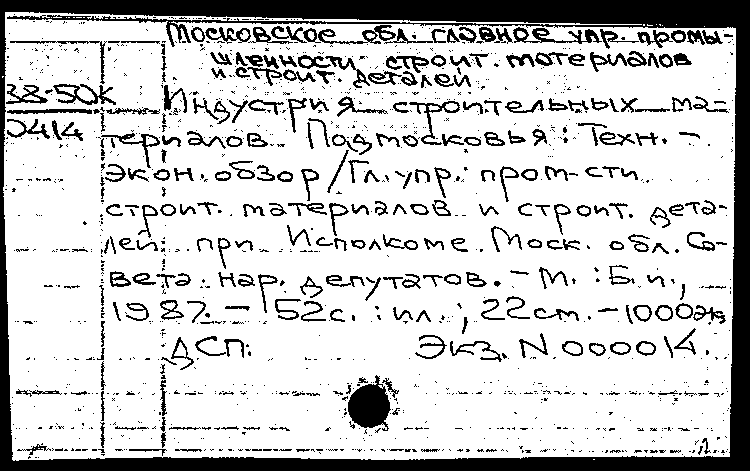 Московское обл. главное упр. промы-
шленности строит. материалов
и строит. деталей
38-50к
Индустрия строительных ма-
0414
териалов Подмосковья : Техн. -
экон. обзор / Гл. упр. пром-сти
строит. материалов и строит. дета-
лей при Исполкоме Моск. обл. Со-
вета нар. депутатов. - М. : Б.и.,
1987. - 52с. : ил. ; 22см. - 1000экз
ДСП. Экз. N 000014.